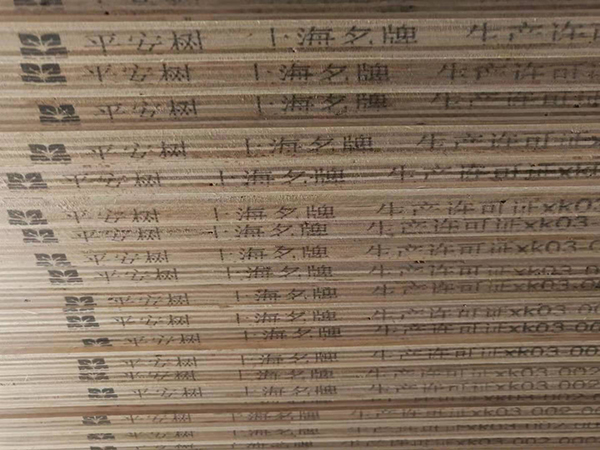 平安树 上海名牌 生产许可
平安树 上海名牌 生产许可
平安树 上海名牌 生产许可
平安树 上海名牌 生产许可证
平安树 上海名牌 生产许可证
平安树 上海名牌 生产许可证xk03
平安树 上海名牌 生产许可证xk03
平安树 上海名牌 生产许可证xk03-0
平安树 上海名牌 生产许可证xk03
平安树 上海名牌 生产许可证xk03-002
平安树 上海名牌 生产许可证xk03-00
平安树 上海名牌 生产许可证xk03-00
平安树 上海名牌 生产许可证xk03-00
平安树 上海名牌 生产许可证xk03-002
平安树 上海名牌 生产许可证xk03-002
平安树 上海名牌 生产许可证xk03-002